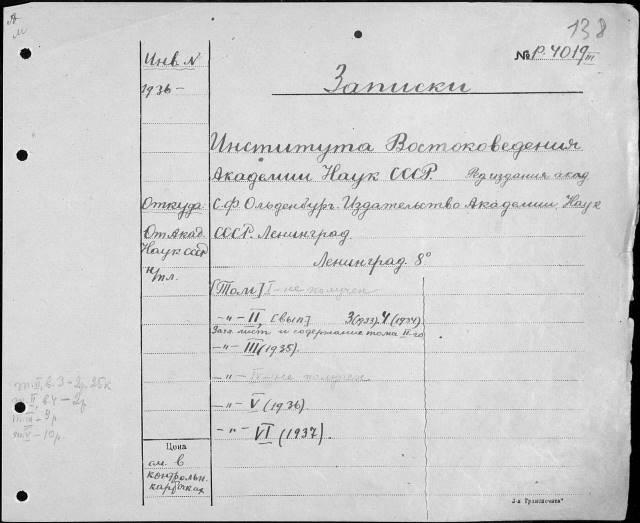 138
№ Р. 4019 III
Инв. N
Записки
1936 -
Института Востоковедения
Академии Наук СССР. Ред издания акад
Откуда.
С.Ф. Ольденбург. Издательство Академии Наук
От Акад.
СССР. Ленинград.
Наук СССР
Ленинград 8°
н/пл.
[Том] I - не получен
-"- II, [вып] 3 (1933). 4 (1934)
Загл. лист и содержание тома II-го
-"- III (1935).
-"- IV - не получен
т. II, в. 3 - 2р. 25к
т. II в 4 - 2р
-"- V (1936)
т. III - 9р
т. V - 10р.
-"- VI (1937).
Цена
см. в
контрольн.
карточках